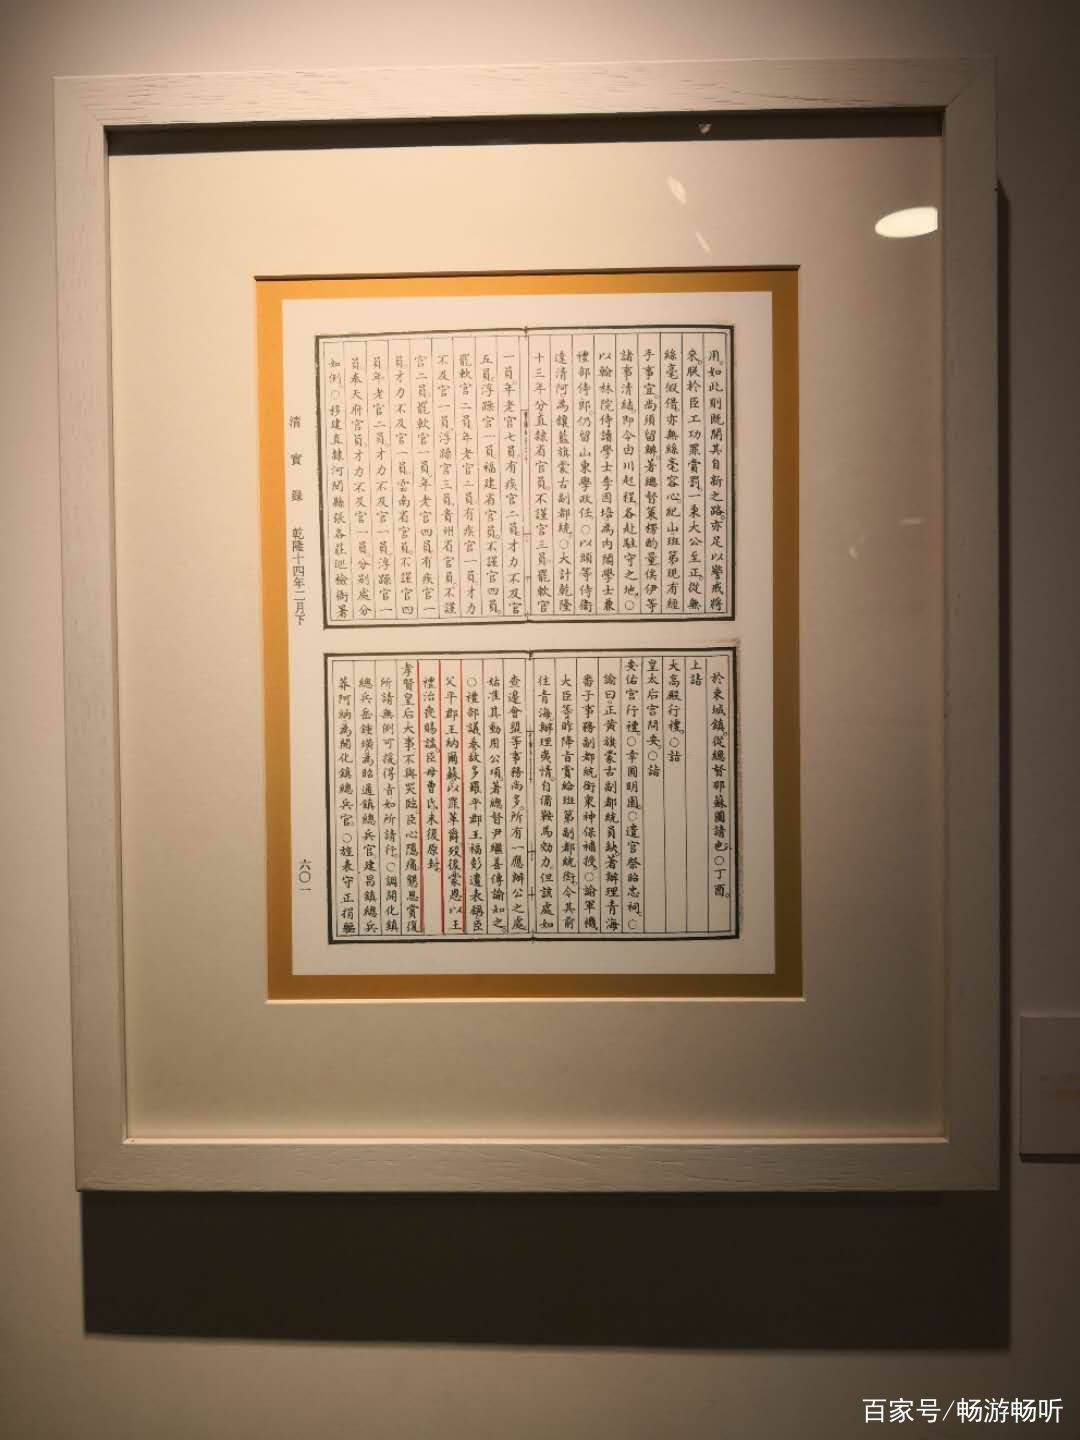 用。如此則既開其自新之路。亦足以警戒將
來。朕於臣工功罪賞罰。一秉大公至正。從無
絲毫假借。亦無絲毫容心。紀山班第現有經
手事宜。尚須留辦。著總督策楞酌量。俟伊等
諸事清結。即令由川起程。各赴駐守之地。○
以翰林院侍讀學士李因培為內閣學士兼
禮部侍郎。仍留山東學政任。○以頭等侍衛
達清阿為鑲藍旗蒙古副都統。○大計乾隆
十三年分直隸省官員。不謹官三員。罷軟官
一員。年老官七員。有疾官二員。才力不及官
五員。浮躁官一員。福建省官員。不謹官四員。
罷軟官二員。年老官二員。有疾官一員。才力
不及官一員。浮躁官三員。貴州省官員。不謹
官二員。罷軟官一員。年老官四員。有疾官一
員。才力不及官一員。雲南省官員。不謹官四
員。年老官二員。才力不及官一員。浮躁官一
員。奉天府官員。才力不及官一員。分別處分
如例。○移建直隸河間縣張各莊巡檢衙署
清實錄 乾隆十四年二月下
於東城鎮。從總督那蘇圖請也。○丁酉。
上詣
大高殿行禮。○詣
皇太后宮問安。○詣
安佑宮行禮。○幸圓明園。○遣官祭昭忠祠。○
諭曰。正黃旗蒙古副都統員缺。著辦理青海
番子事務副都統銜眾神保補授。○諭軍機
大臣等。昨降旨賞給班第副都統銜。令其前
往青海。辦理夷情。自備鞍馬効力。但該處如
查邊會盟等事務尚多。所有一應辦公之處。
姑准其動用公項。著總督尹繼善傳諭知之。
○禮部議奏。故多羅平郡王福彭遺表稱。臣
父平郡王納爾蘇。以罪革爵。歿後蒙恩以王
禮治喪賜諡。臣母曹氏未復原封。
孝賢皇后大事。不與哭臨。臣心隱痛。懇恩賞復
所請無例可援。得旨。如所請行。○調開化鎮
總兵岳鍾璜為昭通鎮總兵官。建昌鎮總兵
莽阿納為開化鎮總兵官。○旌表守正捐軀
六〇一
百家号/畅游畅听